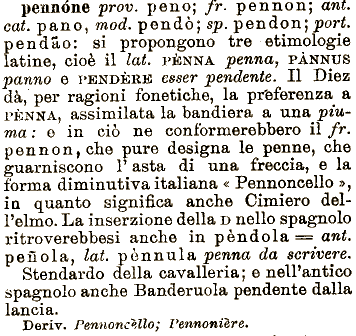 pennóne prov. peno; fr. pennon; ant.
cat. pano, mod. pendò; sp. pendon; port.
pendão: si propongono tre etimologie
latine, cioè il lat. PÈNNA penna, PÀNNUS
panno e PENDÈRE esser pendente. Il Diez
dà, per ragioni fonetiche, la preferenza a
PÈNNA, assimilata la bandiera a una piu-
ma: e in ciò ne conformerebbero il fr.
pennon, che pure designa le penne, che
guarniscono l'asta di una freccia, e la
forma diminutiva italiana « Pennoncello »,
in quanto significa anche Cimiero del-
l'elmo. La inserzione della D nello spagnolo
ritroverebbesi anche in pèndola = ant.
peñola, lat. pènnula penna da scrivere.
Stendardo della cavalleria; e nell'antico
spagnolo anche Banderuola pendente dalla
lancia.
Deriv. Pennoncèllo; Pennonière.